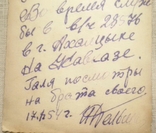 Во время служ
бы в в/ч 28
в г. Ахалцыхе
на Кавказе.
Галя посмотри
на брата своего.
17.V.54г.